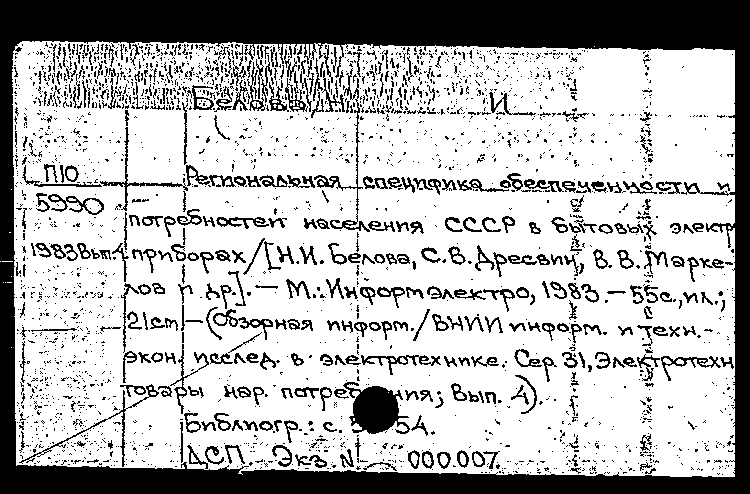 Белова, Н. И
П10 Региональная специфика обеспеченности и
5990 потребностей населения СССР в бытовых электр
1983 Вып.4 приборах / [Н.И. Белова, С.В. Дресвин, В.В. Марке-
лов и др.]. – М.: Информэлектро, 1983. – 55с., ил.;
21см. – (Обзорная информ. / ВНИИ информ. и техн.-
экон. исслед. в электротехнике. Сер. 31, Электротехн
товары нар. потреб ния; Вып. 4).
Библиогр.: с. 54.
ДСП Экз. N 000007.